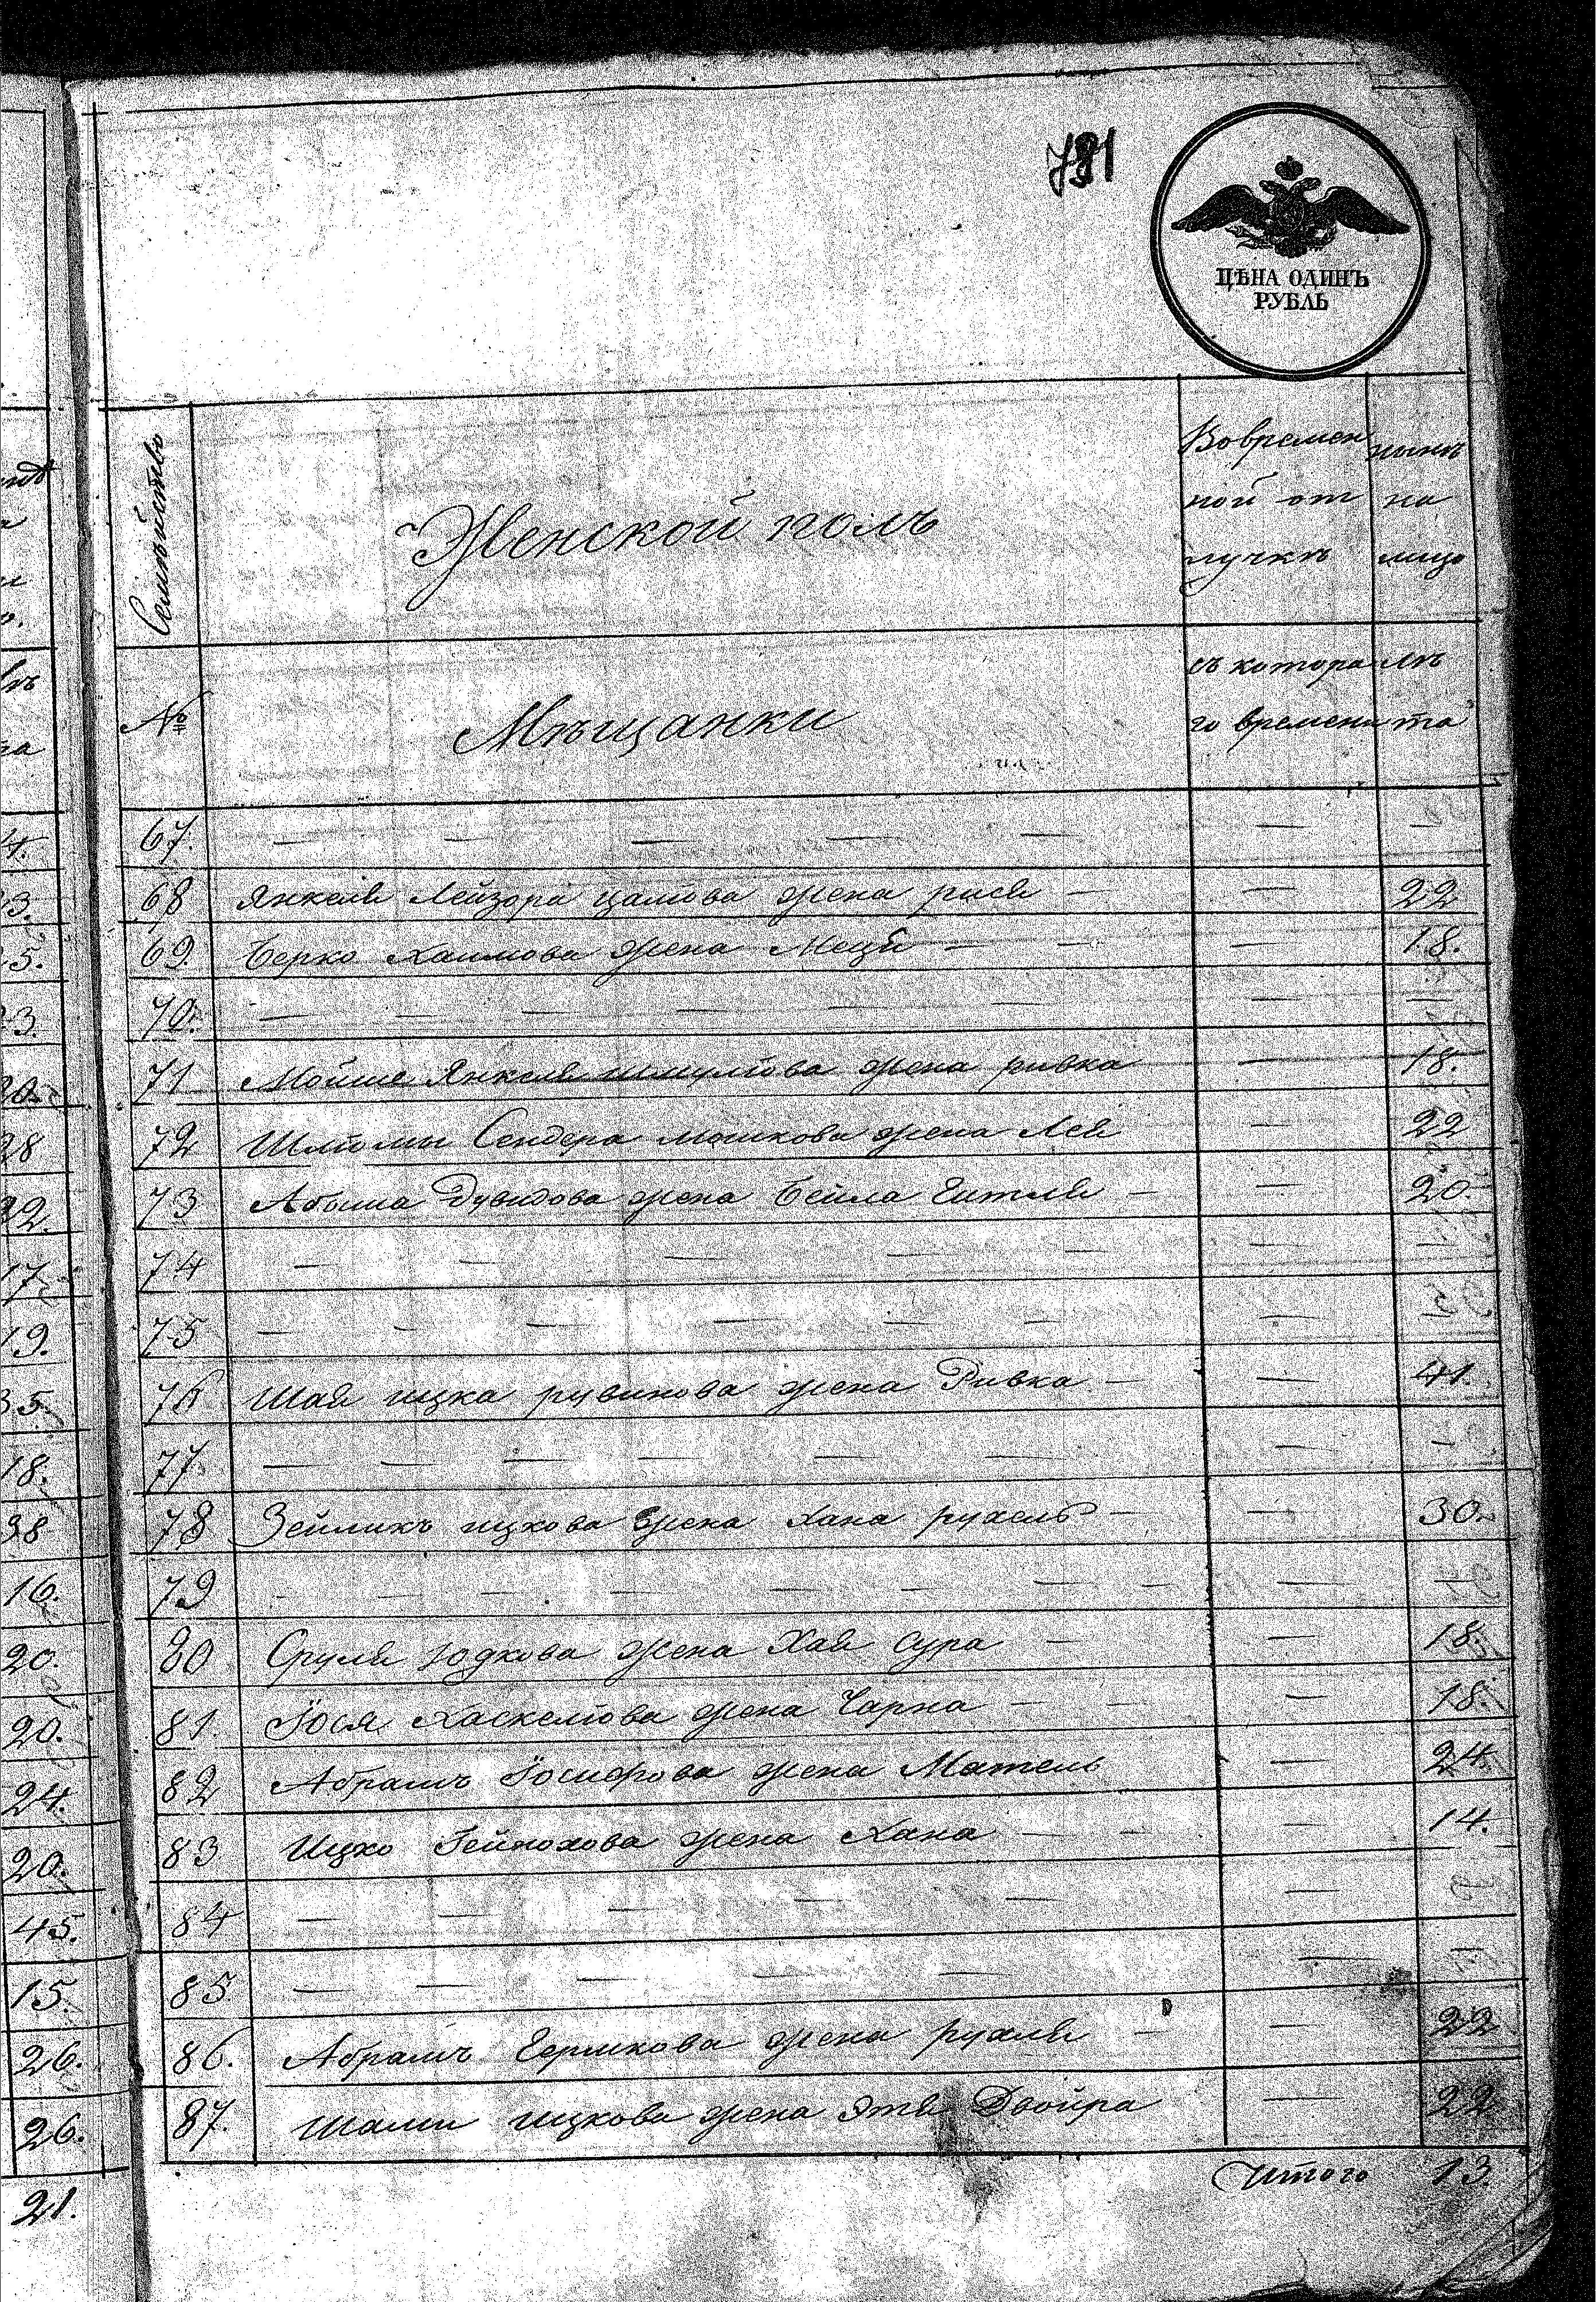 791
ЦѢНА ОДИНЪ
РУБЛЬ
Семѣйство
Женской полъ
Вовремен
ной от
лучкѣ
нынѣ
на
лицо
№
Мѣщанки
съ котора
го времени
лѣ
та
67. — — — — — —
68 Янкеля Лейзора жена рися — — 22
69. Берко Хаимова жена Меця — — — 18.
70. — — — — — — —
71 Мойше Янкеля шмулiова жена ривка — 18.
72 Шлiомы Сендера мошкова жена Лея — 22
73 Абыша Дувидова жена Бейла Гитля — — 20.
74 — — — — — — —
75 — — — — — — — —
76 Шая ицка рувинова жена Ривка — — 41.
77. — — — — — — — —
78 Зейликъ ицкова жена хана рухель — — 30.
79 — — — — — — — — —
80 Сруля Юдкова жена Хая сура — — 18.
81. Іося Хаскелiова жена Чарна — — — 18.
82 Абрамъ Іосифова жена Матель — 24.
83 Ицко жена Хана — — — 14.
84 — — — — — —
85. — — — — — — —
86. Абрамъ Гершкова жена рухля — — 22
87. ицкова жена Этя Двойра — 22
Итого 13.
4.
3.
5.
3.
20.
28
22.
17.
19.
35.
18.
38
16.
20.
20.
24.
20.
45.
15.
26.
26.
21.